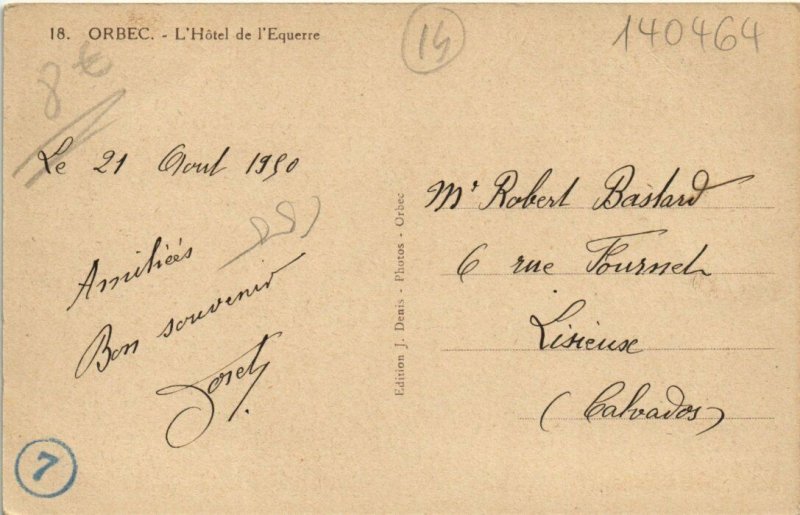 18. ORBEC. - L'Hôtel de l'Equerre
14
140464
8 €
Le 21 Aout 1950
Amitiées
Bon souvenir
Edition J. Denis - Photos - Orbec
Mr Robert Bastard
6 rue Fournet
Lisieux
(Calvados)
7